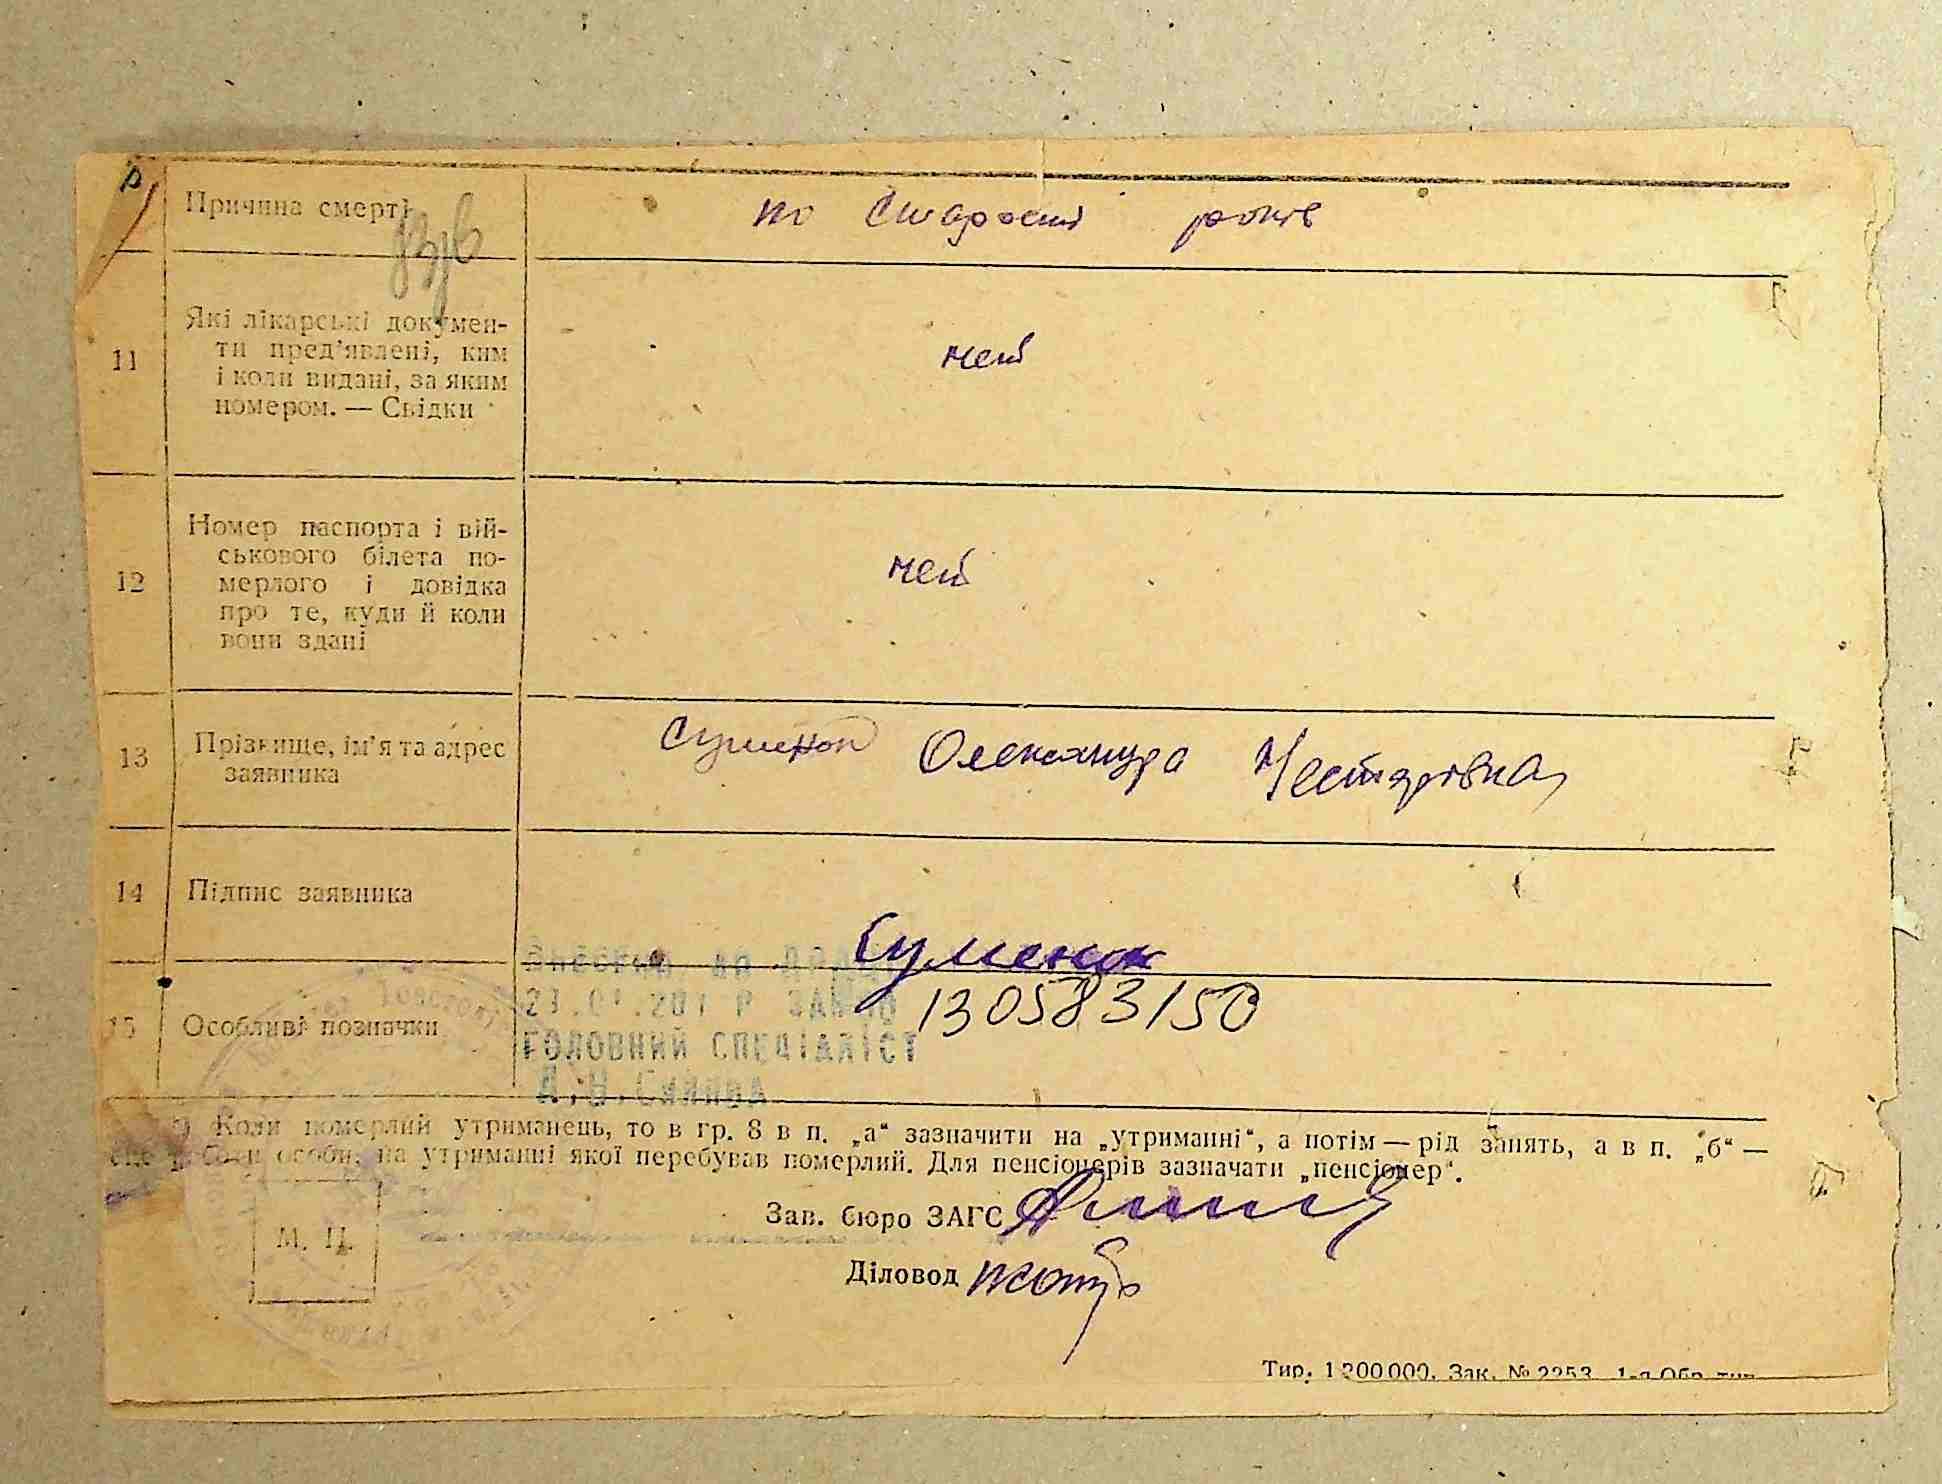 Причина смерті
по старості років
11
Які лікарські докумен-
ти пред'явлені, ким
і коли видані, за яким
номером. — Свідки
нет
12
Номер паспорта і вій-
ськового білета по-
мерлого і довідка
про те, куди й коли
вони здані
нет
13
Прізвище, ім'я та адрес
заявника
Сименок Олександра Нестерівна
14
Підпис заявника
Суменок
15
Особливі позначки
130583150
ГОЛОВНИЙ СПЕЦІАЛІСТ
Коли померлий утриманець, то в гр. 8 в п. „а“ зазначити на „утриманні“, а потім — рід занять, а в п. „б“ —
особи, на утриманні якої перебував померлий. Для пенсіонерів зазначати „пенсіонер“.
Зав. бюро ЗАГС
М. П.
Діловод
Тир. 1 200 000. Зак. № 2253